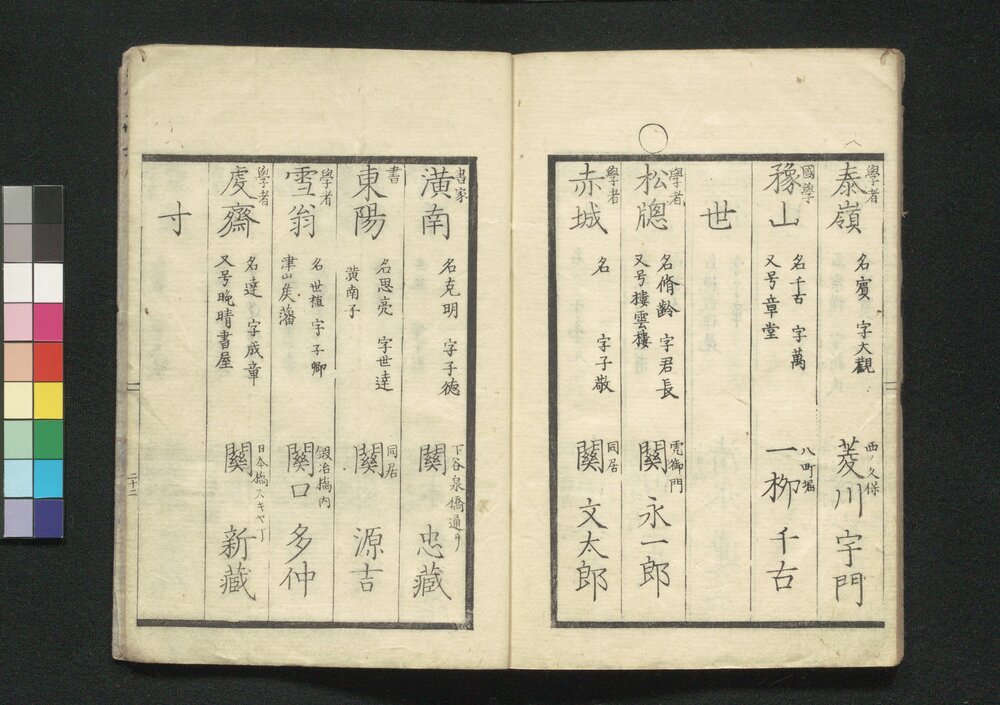 學者
泰嶺
名賓 字大觀
西久保
菱川字門
國學
豫山
名千古 字萬
又号章堂
八町堀
一柳千古
世
學者
松牎
名脩齡 字君長
又号樓雲樓
虎御門
關永一郎
學者
赤城
名 字子敬
同居
關文太郎
書家
潢南
名克明 字子徳
下谷泉橋通り
關忠藏
書
東陽
名思亮 字世達
潢南子
同居
關源吉
學者
雪翁
名世植 字子卿
津山矦藩
鍛冶橋内
關口多仲
學者
虔齋
名達 字成章
又号晩晴書屋
日今橋スキヤ丁
關新藏
寸
二十二